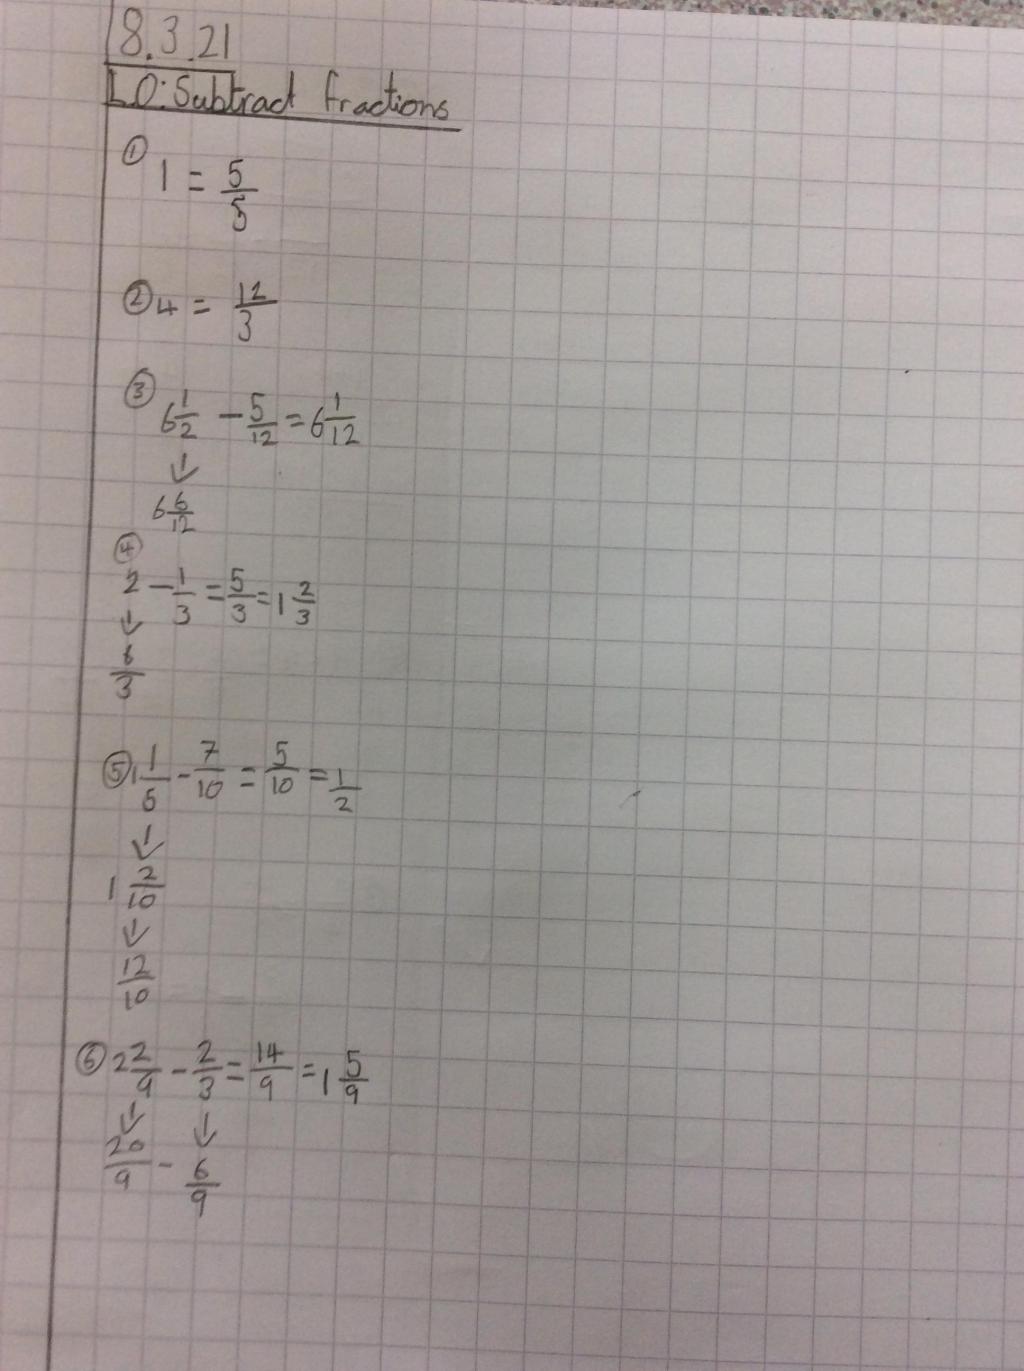 8.3.21
LO: Subtract fractions
① 1 = 5/5
② 4 = 12/3
③ 6 1/2 - 5/12 = 6 1/12
↓
6 6/12
④
2 - 1/3 = 5/3 = 1 2/3
↓
6/3
⑤ 1 1/5 - 7/10 = 5/10 = 1/2
↓
1 2/10
↓
12/10
⑥ 2 2/9 - 2/3 = 14/9 = 1 5/9
↓ ↓
20/9 - 6/9